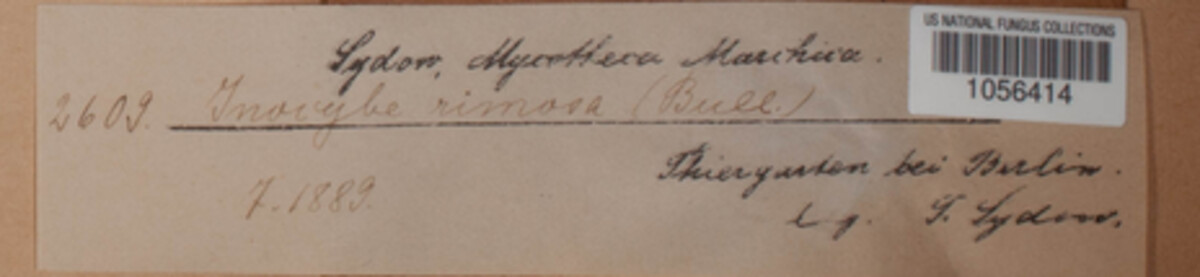 Sydow, Mycotheca Marchica.
US NATIONAL FUNGUS COLLECTIONS
1056414
2609. Inocybe rimosa (Bull.)
Thiergarten bei Berlin.
7.1889.
lg. P. Sydow.